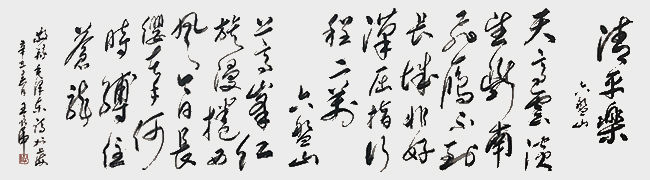 清平樂
六盤山
天高雲淡
望断南
飛雁不到
長城非好
漢屈指行
程二萬
六盤山
上高峰紅
旗漫捲西
風今日長
纓在手何
時縛住
蒼龍
毛澤東